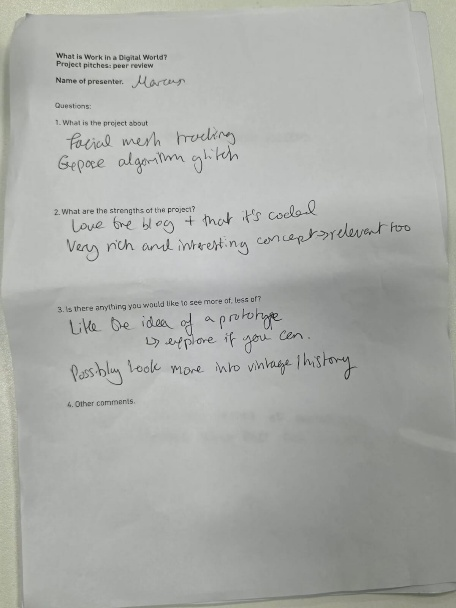 What is Work in a Digital World?
Project pitches: peer review
Name of presenter. Marcus
Questions:
1. What is the project about
Facial mesh tracking
Expose algorithm glitch
2. What are the strengths of the project?
Love the blog + that it's coded
Very rich and interesting concept → relevant too
3. Is there anything you would like to see more of, less of?
Like the idea of a prototype
↳ explore if you can.
Possibly look more into vintage / history
4. Other comments.